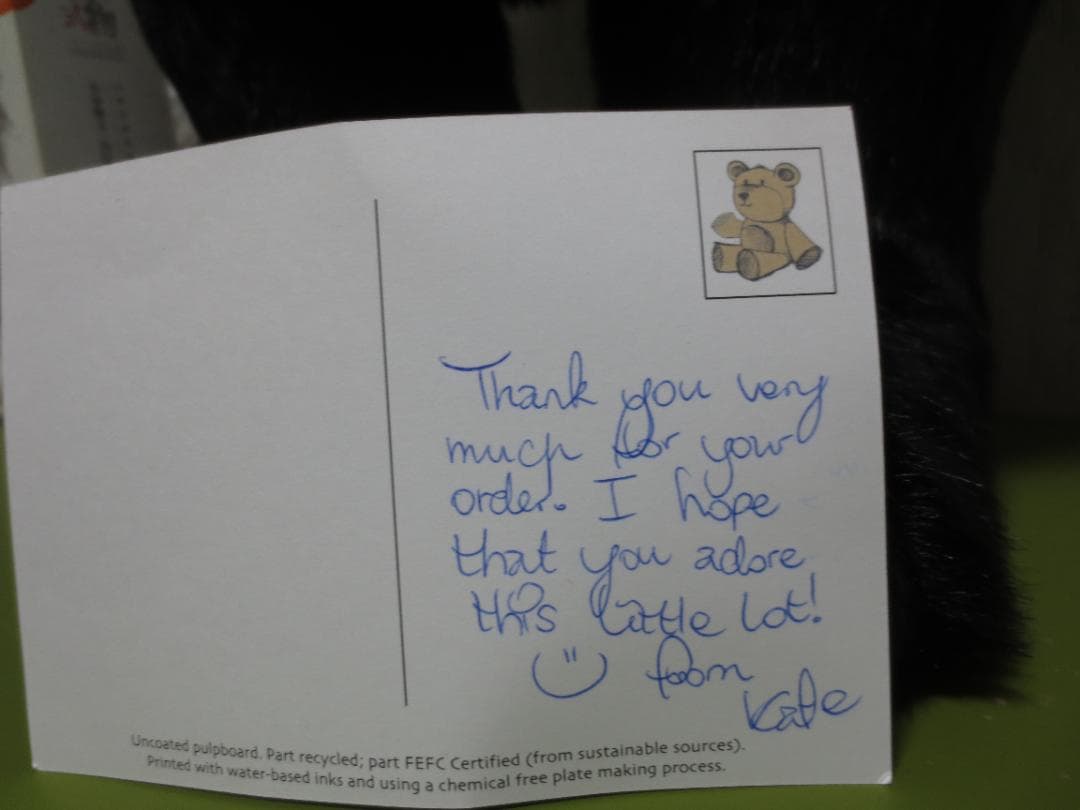 Thank you very
much for your
order. I hope
that you adore
this little lot!
from
Kate
Uncoated pulpboard. Part recycled; part FEFC Certified (from sustainable sources).
Printed with water-based inks and using a chemical free plate making process.